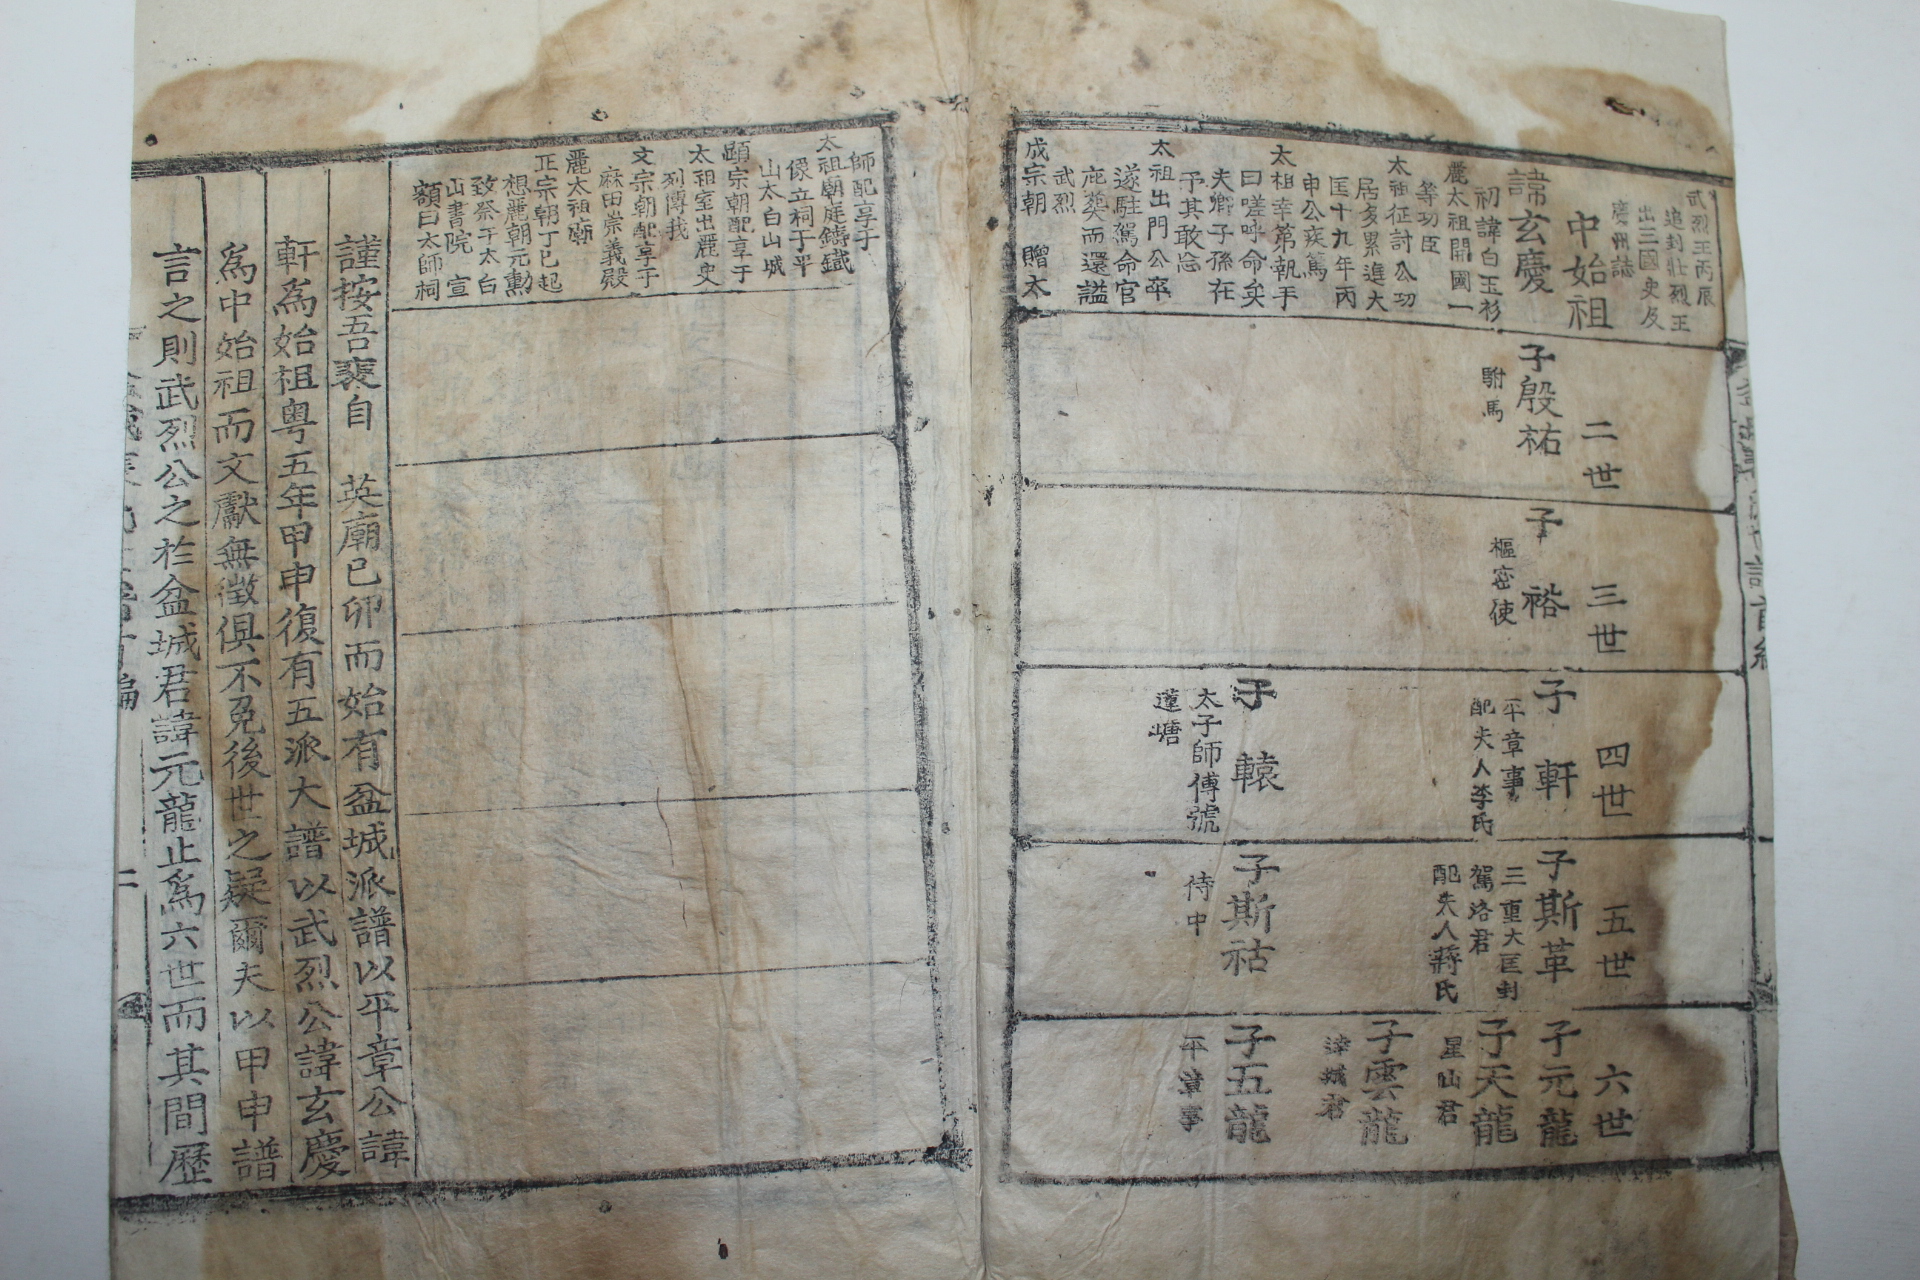 武烈王丙辰
追封壯烈王
出三國史及
慶州誌
中始祖
諱玄慶
初諱白玉衫
麗太祖開國一
等功臣
太祖征討公功
居多累進大
匡十九年丙
申公疾篤
太祖幸第執手
曰嗟呼命矣
夫卿子孫在
予其敢忘
太祖出門公卒
遂駐駕命官
庀葬而還諡
武烈
成宗朝 贈太
二世
子殷祐
駙馬
三世
子 裕
樞密使
四世
子 軒
平章事
配夫人李氏
子 轅
太子師傅號
蓮塘
五世
子斯革
三重大匡封
駕洛君
配夫人蔣氏
子斯祜
侍中
六世
子元龍
子天龍
星山君
子雲龍
漳城君
子五龍
平章事
師配享于
太祖廟庭鑄鐵
像立祠于平
山太白山城
顯宗朝配享于
太祖室出麗史
列傳我
文宗朝配享于
麻田崇義殿
麗太祖廟
正宗朝丁巳起
想麗朝元勳
致祭于太白
山書院 宣
額曰太師祠
謹按吾裴自 英廟己卯而始有盆城派譜以平章公諱
軒爲始祖粤五年甲申復有五派大譜以武烈公諱玄慶
爲中始祖而文獻無徵俱不免後世之疑爾夫以甲申譜
言之則武烈公之於盆城君諱元龍止爲六世而其間歷
二